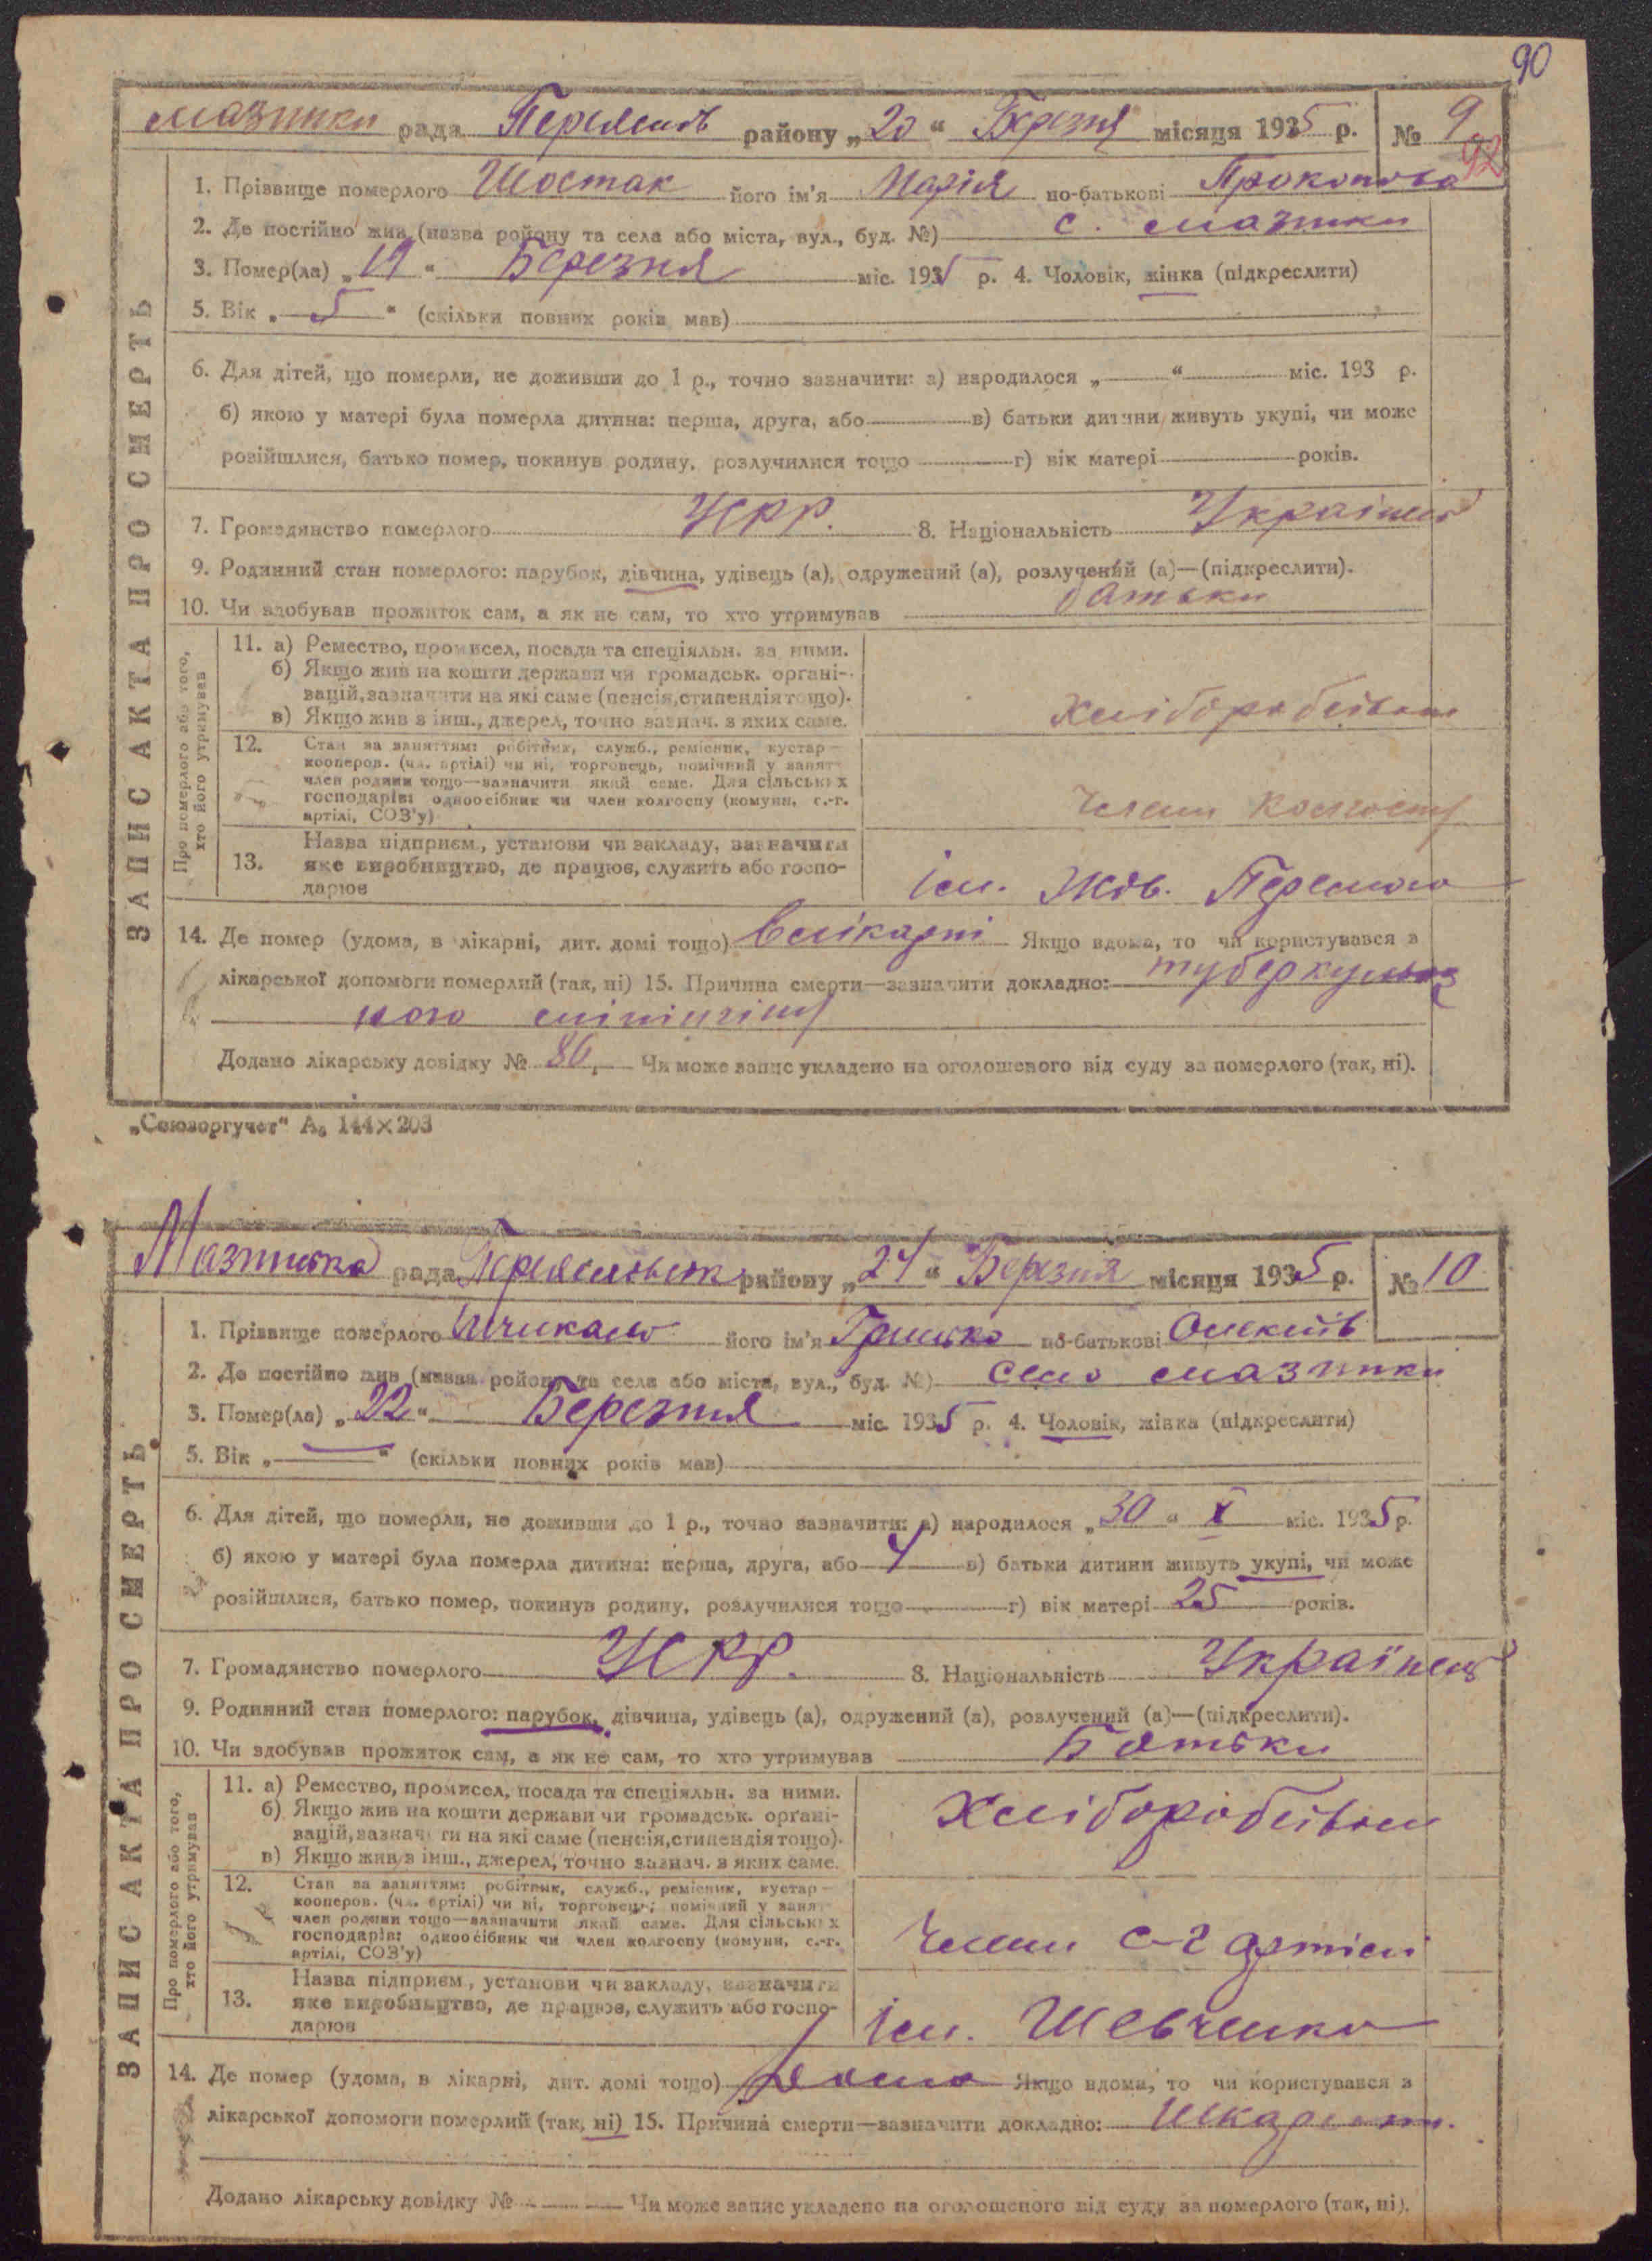 90
Мазинки рада Переяслів району „20“ Березня місяця 1935 р. № 9
92
1. Прізвище померлого Шостак його ім'я Марія по-батькові Прокопова
2. Де постійно жив (назва району та села або міста, вул., буд. №) с. Мазинки
3. Помер(ла) „19“ Березня міс. 1935 р. 4. Чоловік, жінка (підкреслити)
5. Вік „5“ (скільки повних років мав)
6. Для дітей, що померли, не доживши до 1 р., точно зазначити: а) народилося „ “ міс. 193 р.
б) якою у матері була померла дитина: перша, друга, або в) батьки дитини живуть укупі, чи може
розійшлися, батько помер, покинув родину, розлучилися тощо г) вік матері років.
7. Громадянство померлого УСРР. 8. Національність
9. Родинний стан померлого: парубок, дівчина, удівець (а), одружений (а), розлучений (а)—(підкреслити).
10. Чи здобував прожиток сам, а як не сам, то хто утримував батьки
ЗАПИС АКТА ПРО СМЕРТЬ
Про померлого або того,
хто його утримував
11. а) Ремество, промисел, посада та спеціяльн. за ними.
б) Якщо жив на кошти держави чи громадськ. органі-
зацій, зазначити на які саме (пенсія, стипендія тощо).
в) Якщо жив з інш., джерел, точно зазнач. з яких саме.
Хліборобством
12. Стан за заняттям: робітник, служб., ремісник, кустар —
кооперов. (чл. артілі) чи ні, торговець, помічний у занят-
член родини тощо—зазначити який саме. Для сільських
господарів: одноосібник чи член колгоспу (комуни, с.-г.
артілі, СОЗ'у)
Член колгоспу
13. Назва підприєм., установи чи закладу, зазначити
яке виробництво, де працює, служить або госпо-
дарює
ім. Жов. Перемога
14. Де помер (удома, в лікарні, дит. домі тощо) влікарні Якщо вдома, то чи користувався з
лікарської допомоги померлий (так, ні) 15. Причина смерти—зазначити докладно: туберкульоз
ного минінгіту
Додано лікарську довідку № 86, Чи може запис укладено на оголошеного від суду за померлого (так, ні).
„Союзоргучет“ А₅ 144×203
Мазинська рада Переяславськ району „24“ Березня місяця 1935 р. № 10
1. Прізвище померлого його ім'я Грицько по-батькові Олексіїв
2. Де постійно жив (назва району та села або міста, вул., буд. №) село Мазинки
3. Помер(ла) „22“ Березня міс. 1935 р. 4. Чоловік, жінка (підкреслити)
5. Вік „—“ (скільки повних років мав)
6. Для дітей, що померли, не доживши до 1 р., точно зазначити: а) народилося „30“ X міс. 1935 р.
б) якою у матері була померла дитина: перша, друга, або 4 в) батьки дитини живуть укупі, чи може
розійшлися, батько помер, покинув родину, розлучилися тощо г) вік матері 25 років.
7. Громадянство померлого УСРР. 8. Національність Українець
9. Родинний стан померлого: парубок, дівчина, удівець (а), одружений (а), розлучений (а)—(підкреслити).
10. Чи здобував прожиток сам, а як не сам, то хто утримував Батьки
ЗАПИС АКТА ПРО СМЕРТЬ
Про померлого або того,
хто його утримував
11. а) Ремество, промисел, посада та спеціяльн. за ними.
б) Якщо жив на кошти держави чи громадськ. органі-
зацій, зазначити на які саме (пенсія, стипендія тощо).
в) Якщо жив з інш., джерел, точно зазнач. з яких саме.
Хліборобством
12. Стан за заняттям: робітник, служб., ремісник, кустар —
кооперов. (чл. артілі) чи ні, торговець, помічний у занят-
член родини тощо—зазначити який саме. Для сільських
господарів: одноосібник чи член колгоспу (комуни, с.-г.
артілі, СОЗ'у)
Член с-г артілі
13. Назва підприєм., установи чи закладу, зазначити
яке виробництво, де працює, служить або госпо-
дарює
ім. Шевченко
14. Де помер (удома, в лікарні, дит. домі тощо) Дома Якщо вдома, то чи користувався з
лікарської допомоги померлий (так, ні) 15. Причина смерти—зазначити докладно:
Додано лікарську довідку № — Чи може запис укладено на оголошеного від суду за померлого (так, ні).